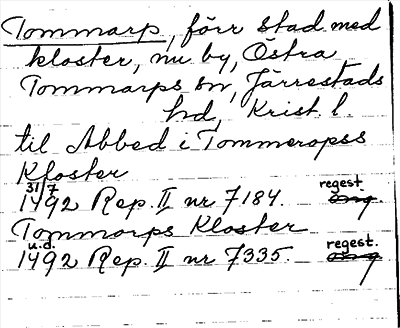 Tommarp, förr stad med
kloster, nu by, Östra
Tommarps sn, Järrestads
hd, Krist. l.
til Abbed i Tommeropss
Kloster
31/7
1492 Rep. II nr 7184. regest.
Tommarps Kloster
u.d.
1492 Rep. II nr 7335. regest.